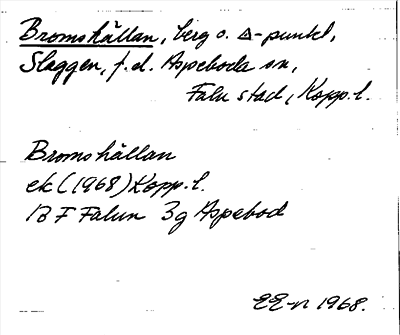 Bromshällan, berg o. Δ-punkt,
Slaggen, f.d. Aspeboda sn,
Falu stad, Kopp. l.
Bromshällan
ek (1968) Kopp. l.
13 F Falun 3g Aspebod
EE-n 1968.